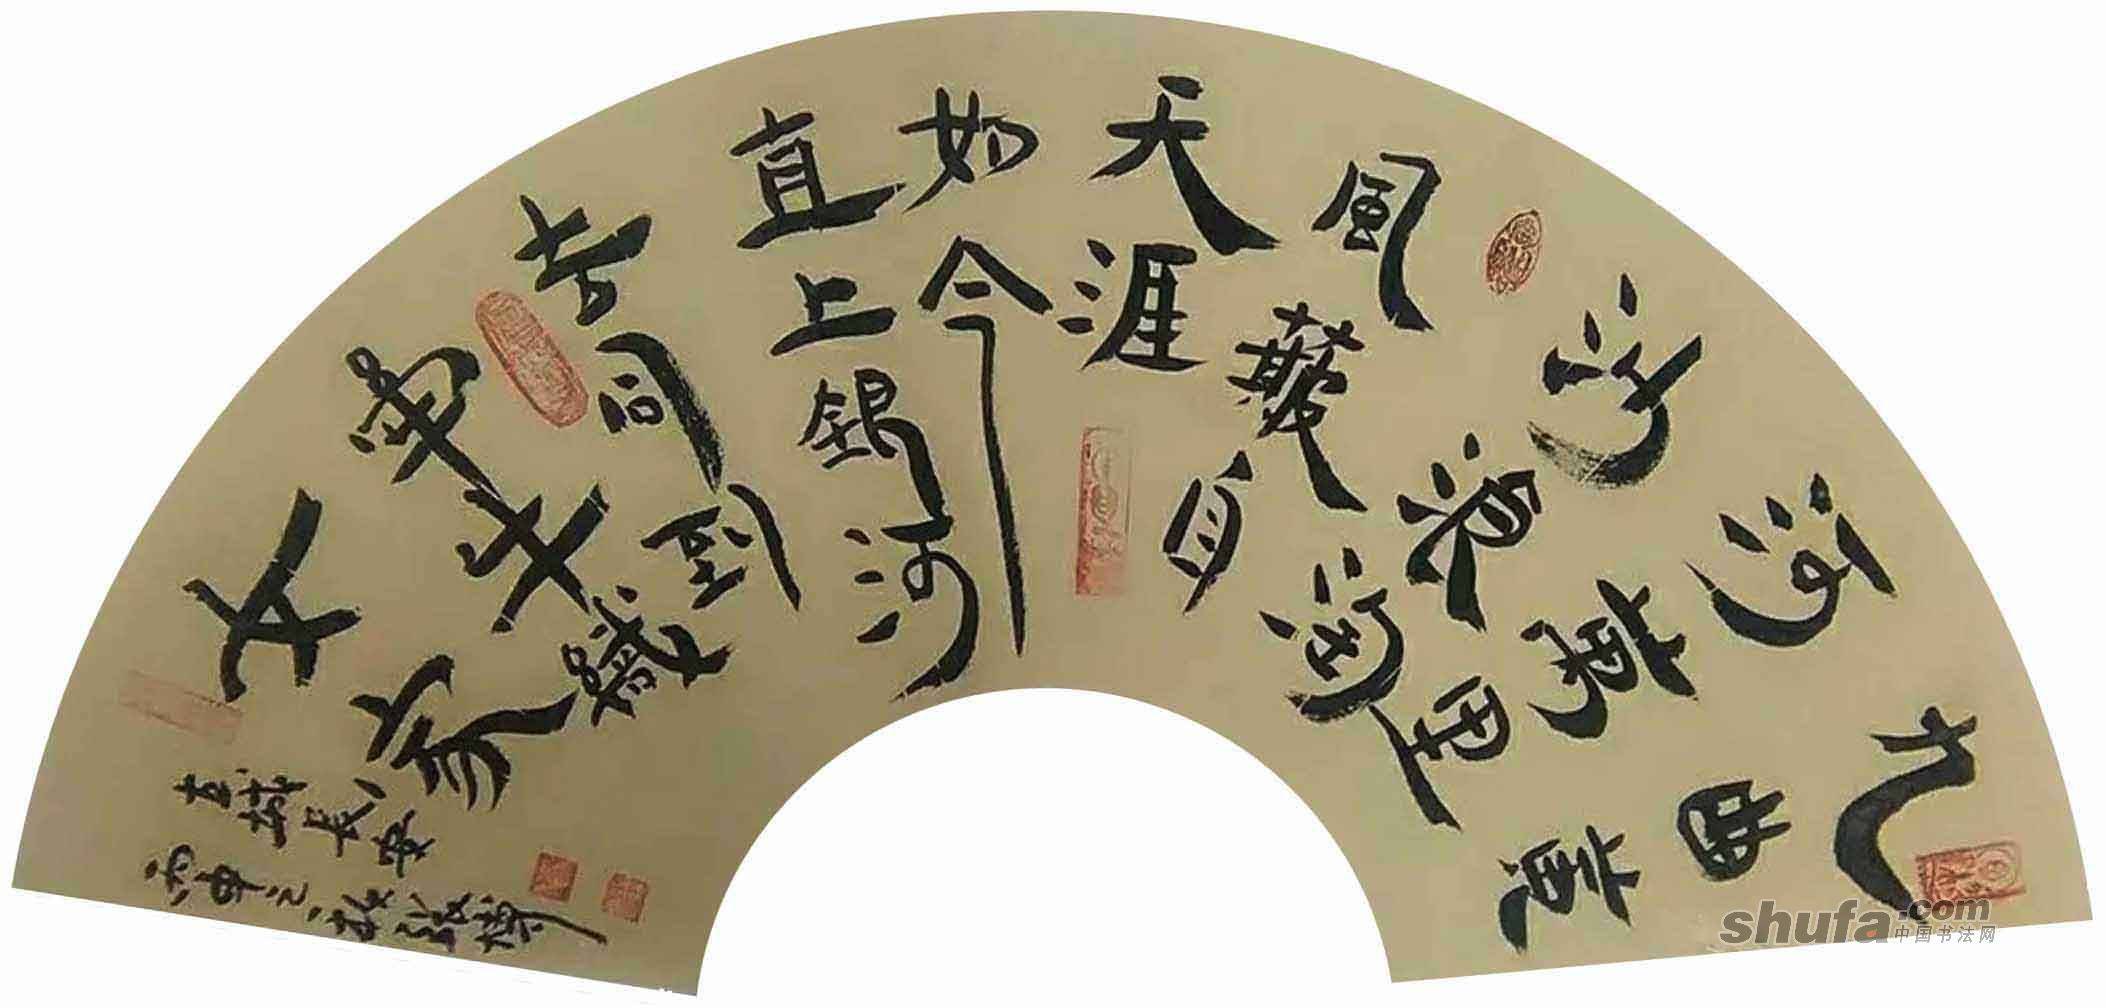 九曲黄
河萬里
沙浪淘
風簸自
天涯
如今
直上銀河
去同到
牽牛織
女家
長安
丙申之秋
shufa.com
中国书法网